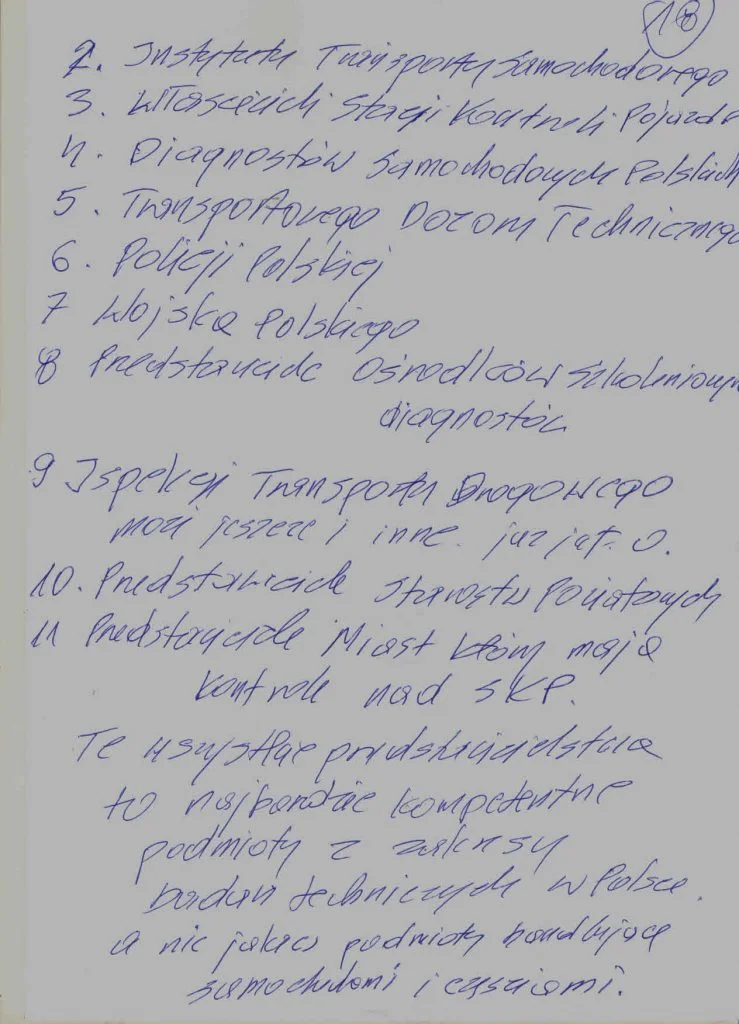 18
2. Instytutu Transportu Samochodowego
3. Właścicieli Stacji Kontroli Pojazdó
4. Diagnostów Samochodowych Polskich
5. Transportowego Dozoru Technicznego
6. Policji Polskiej
7 Wojska Polskiego
8 Predstawiciele Ośrodków Szkoleniowych
diagnostów
9 Ispekcji Transportu Drogowego
może jeszcze i inne. już jat. o.
10. Predstawiciele Starostw Powiatowych
11 Predstawiciele Miast którzy mają
kontrole nad SKP.
Te wszystkie predstawicielstwa
to najbardzie kompetentne
podmioty z zakresu
badań technicznych w Polsce.
a nie jakieś podmioty handlujące
samochodami i częściami.